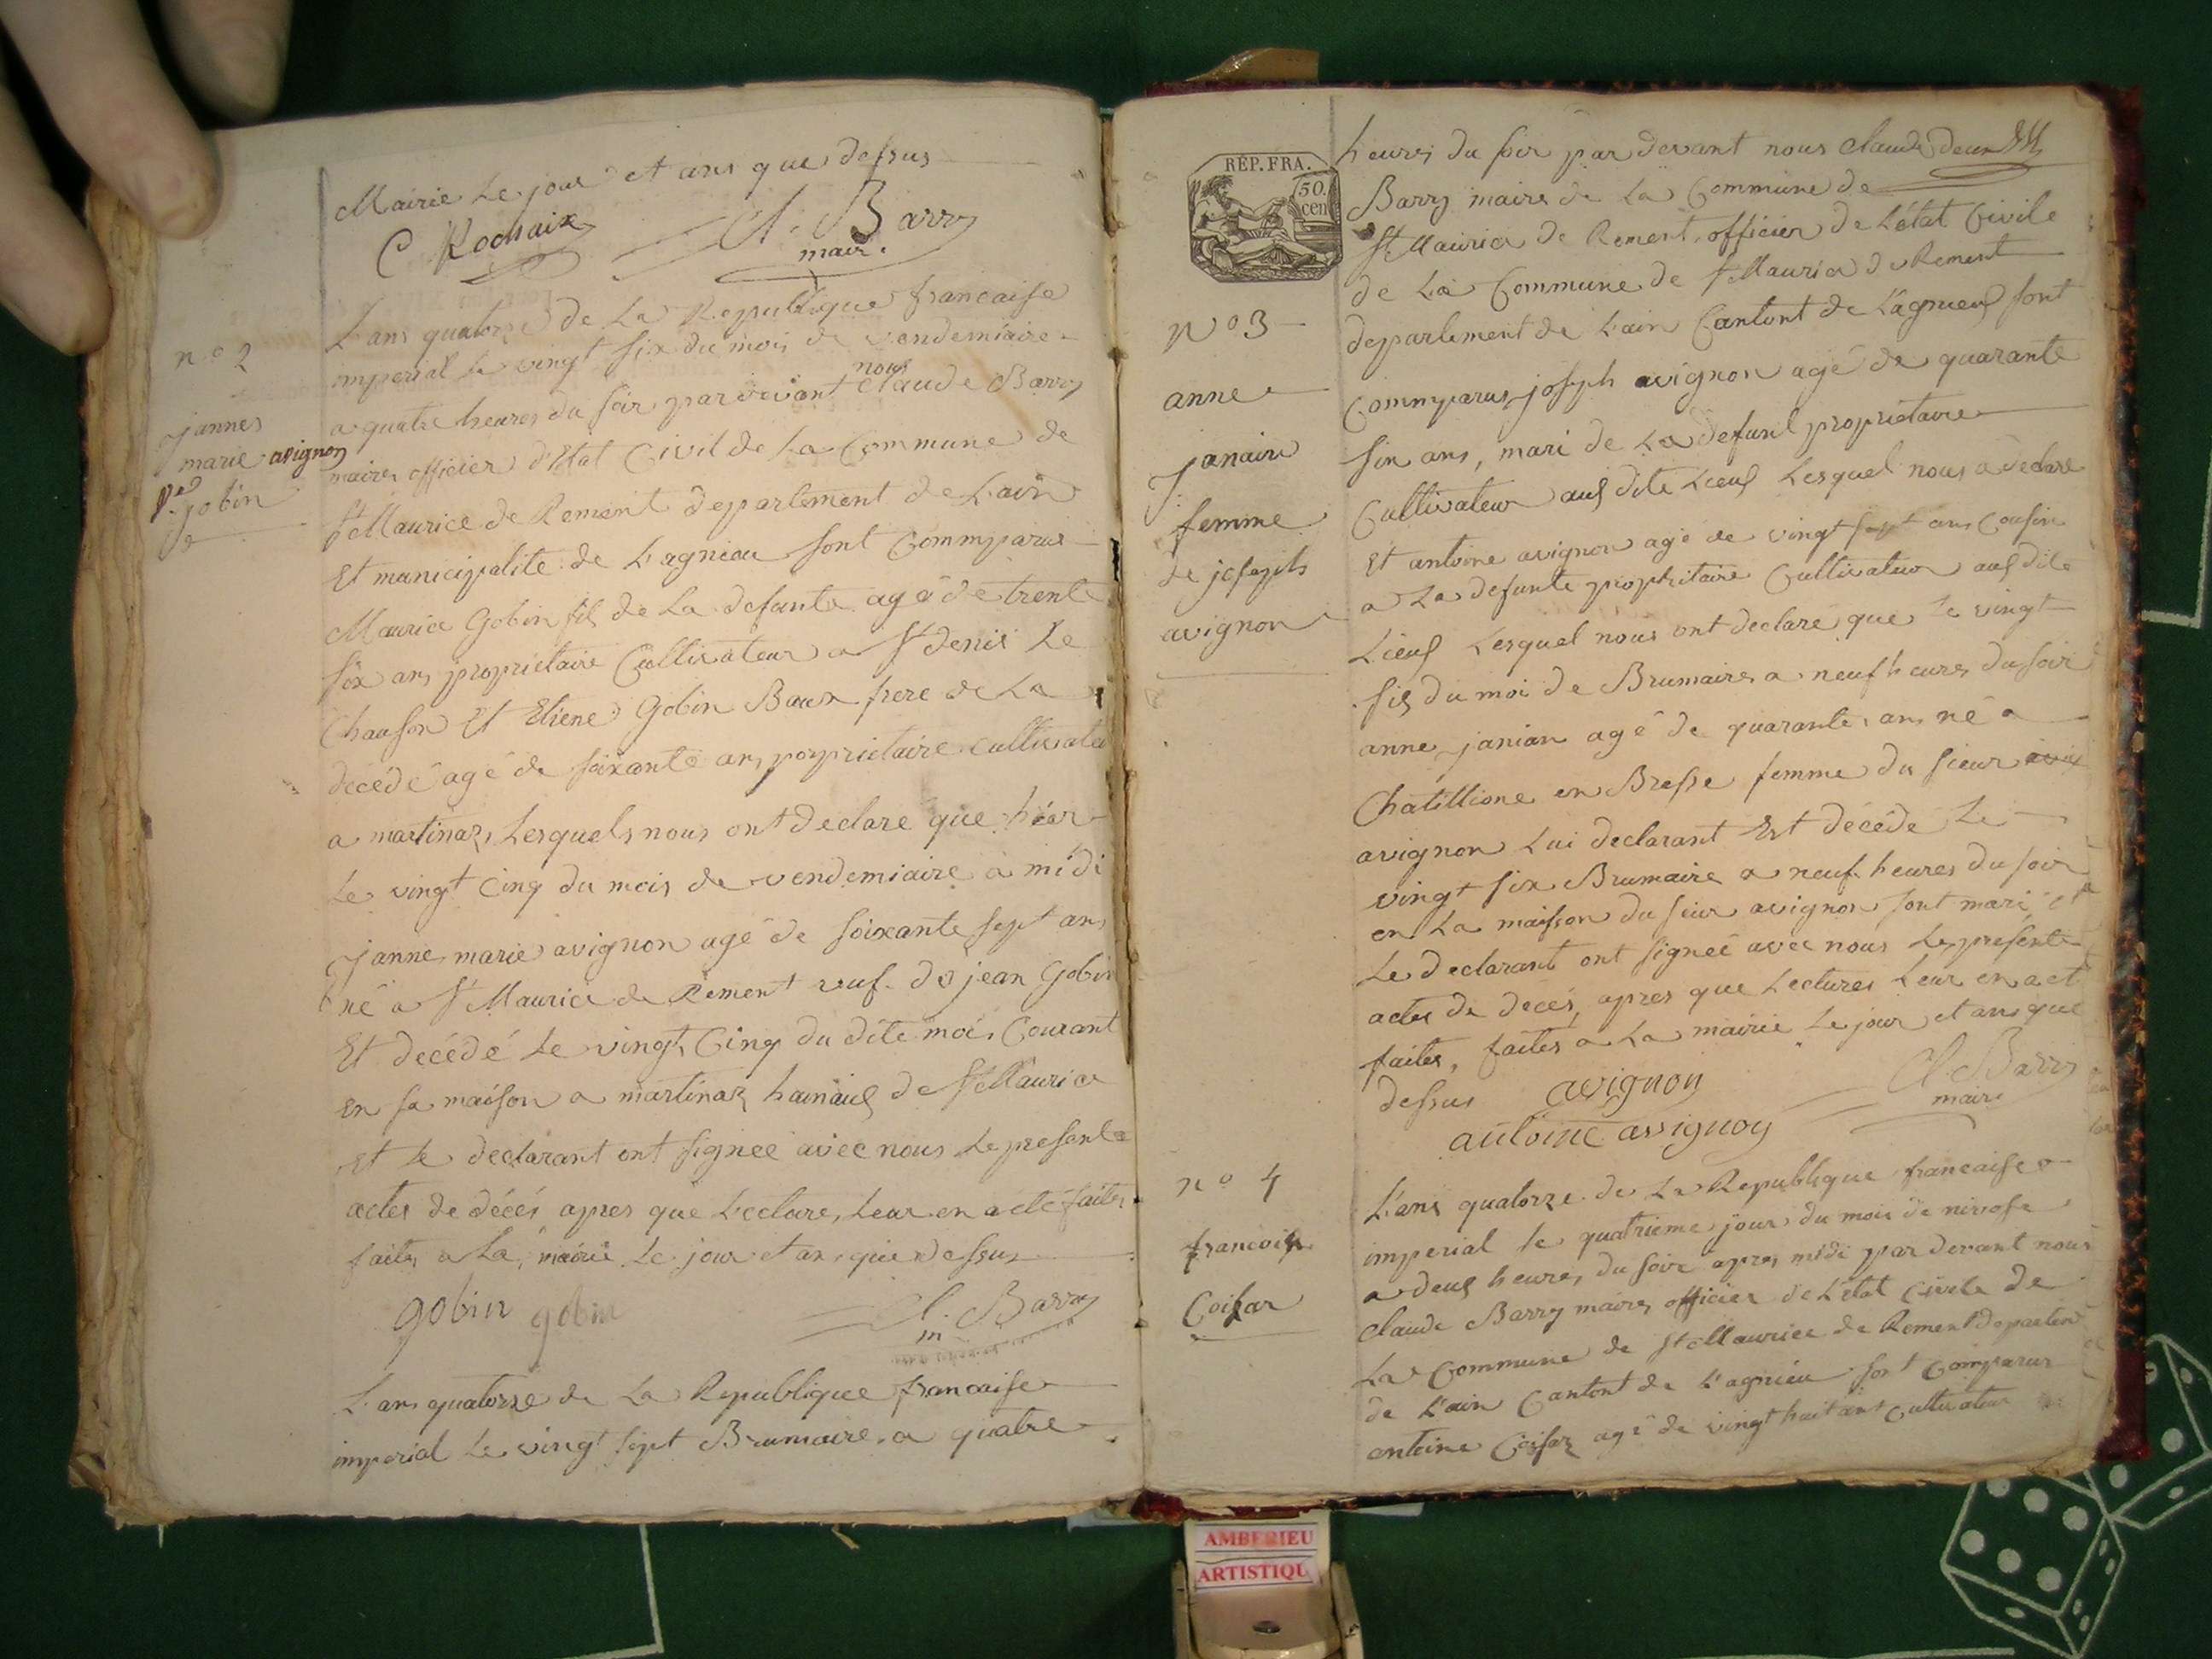 Mairie Le jour et ans que dessus
C Rochaix Cl. Barry
maire.
n.o 2
jannes
marie avignon
Ve
gobin
L'ans quatorze de La Republique francaise
imperial le vingt six du mois de vendemiaire
a quatre heures du soir pardevant nous Claude Barry
maires officier d'Etat Civil de La Commune de
St Maurice de Rement departement de L'ain
Et municipalite de L'agnieu sont Commparus
Maurice Gobin fils de La defunte agé de trente
six ans propriétaire Cultivateur a St denis Le
Chauson Et Etiene Gobin Baux frere de La
décédé agé de soixante ans porprietaire cultivateu
a martinaz, Lesquels nous ont declare que hier
Le vingt Cinq du mois de vendemiaire a midi
Janne marie avignon agé de soixante sept ans
né a St Maurice de Rement veuf de jean Gobin
Et decédé Le vingt Cinq du dite mois Courant
En sa maison a martinaz hamaus de St Maurice
et Le declarant ont signeé avec nous Le presente
actes de décés apres que Lecture, Leur en a eté faites
faites a La mairie Le jour et ans que dessus
gobin gobin Cl. Barry
m
L'ans quatorze de La Republique francaise
imperial Le vingt sept Brumaire a quatre
RÉP. FRA.
50.
cen
n o 3
anne
janain
femme
de joseph
avignon
heures du soir par devant nous Claude
Barry maire de La Commune de
St Maurice de Rement, officier de L'état Civile
de La Commune de St Maurice de Rement
departement de L'ain Cantont de L'agnieus sont
Commparus joseph avignon agé de quarante
six ans, mari de La defunt propriétaire
Cultivateur aus dite Lieus Lesquel nous a declare
Et antoine avignon agé de vingt sept ans Cousin
a La defunte proprietaire Cultivateur aus dite
Lieus Lesquel nous ont declaré que Le vingt
sis du moi de Brumaires a neuf heures du soir
anne janian agé de quarante ans né a
Chatillione en Bresse femme du sieur
avignon Lui declarant Est décéde Le
vingt six Brumaire a neuf heures du soir
en La maison du sieur avignon sont mari et
Le declarant ont signeé avec nous Le presente
actes de décés, apres que Lectures Leur en a et
faites, faites a La mairie Le jour et ans que
dessus avignon Cl. Barry
maire
antoine avignon
n o 4
francoise
Coisar
L'ans quatorze de La Republique francaise
imperial Le quatrieme jour du mois de nivose
a deus heures du soir apres midi par devant nous
Claude Barry maires officier de L'etat Civile de
La Commune de St Maurice de Rement departem
de L'ain Cantont de L'agnieu sont Comparus
antoine agé de vingt huit ans cultivateur
AMBERIEU
ARTISTIQU